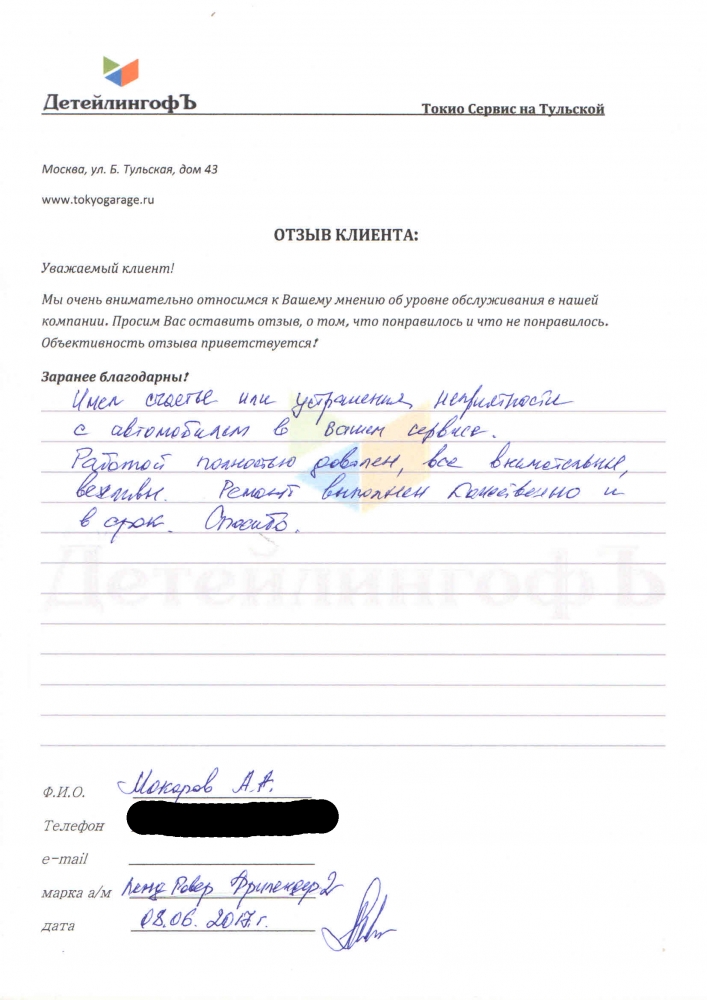 ДетейлингофЪ
Токио Сервис на Тульской
Москва, ул. Б. Тульская, дом 43
www.tokyogarage.ru
ОТЗЫВ КЛИЕНТА:
Уважаемый клиент!
Мы очень внимательно относимся к Вашему мнению об уровне обслуживания в нашей
компании. Просим Вас оставить отзыв, о том, что понравилось и что не понравилось.
Объективность отзыва приветствуется!
Заранее благодарны!
Имел счастье или устранения неприятности
с автомобилем в вашем сервисе.
Работой полностью доволен, все внимательные,
вежливы. Ремонт выполнен качественно и
в срок. Спасибо.
ДетейлингофЪ
Ф.И.О. Макаров А.А.
Телефон
e-mail
марка а/м Ленд Ровер Фрилендер 2
дата 08.06.2017г.